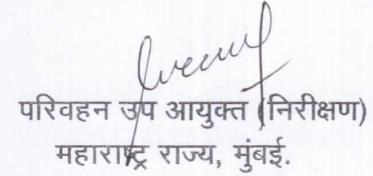 परिवहन उप आयुक्त (निरीक्षण)
महाराष्ट्र राज्य, मुंबई.